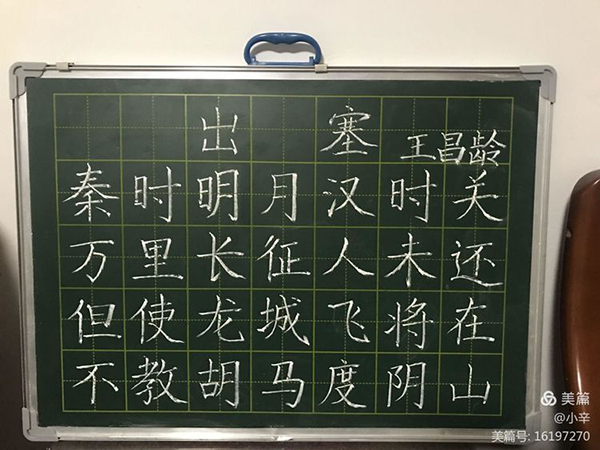 出塞
王昌龄
秦时明月汉时关
万里长征人未还
但使龙城飞将在
不教胡马度阴山
美篇
@小辛
美篇号: 16197270